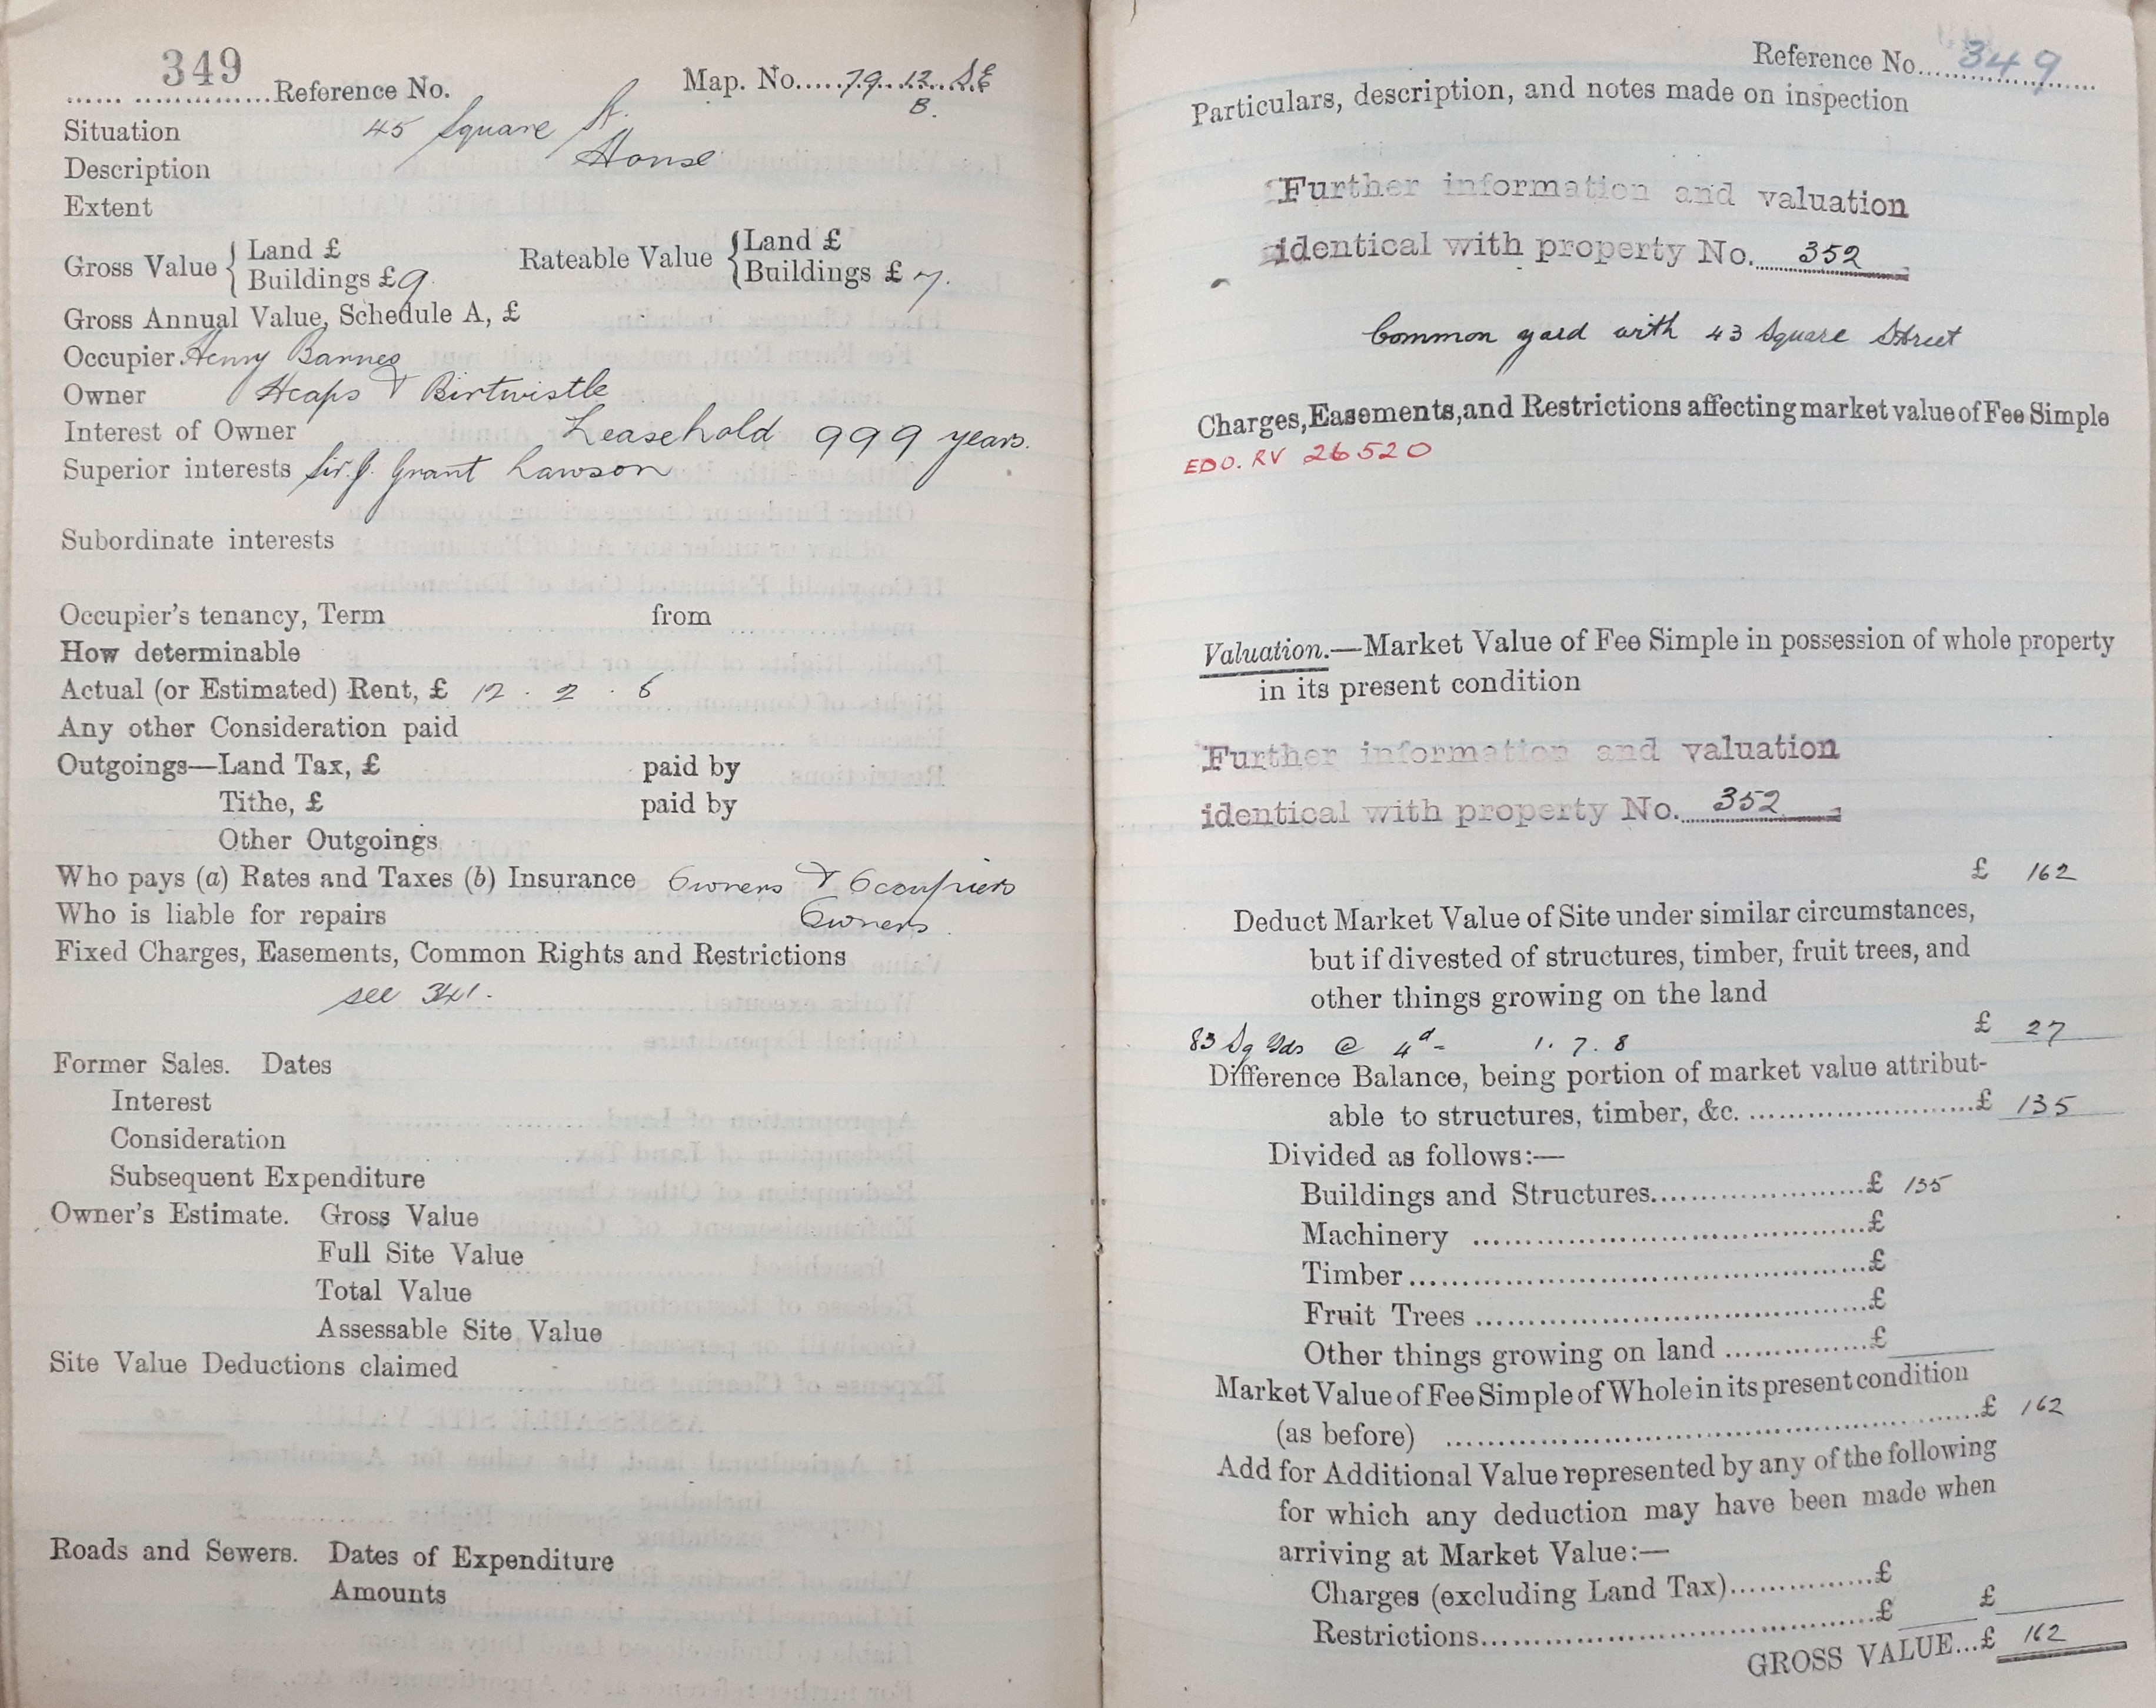 349
...... ..............Reference No. Map. No.....79.12. S.E
B.
Situation 45 Square St.
Description House
Extent
Gross Value { Land £ Rateable Value { Land £
Buildings £ 9. Buildings £ 7.
Gross Annual Value, Schedule A, £
Occupier. Henry Barnes
Owner Heaps & Birtwistle
Interest of Owner Leasehold 999 years.
Superior interests Sir. J. Grant Lawson
Subordinate interests
Occupier's tenancy, Term from
How determinable
Actual (or Estimated) Rent, £ 12 . 2 . 6
Any other Consideration paid
Outgoings—Land Tax, £ paid by
Tithe, £ paid by
Other Outgoings
Who pays (a) Rates and Taxes (b) Insurance Owners & Occupiers
Who is liable for repairs Owners.
Fixed Charges, Easements, Common Rights and Restrictions
see 341.
Former Sales. Dates
Interest
Consideration
Subsequent Expenditure
Owner's Estimate. Gross Value
Full Site Value
Total Value
Assessable Site Value
Site Value Deductions claimed
Roads and Sewers. Dates of Expenditure
Amounts
Reference No....349...
Particulars, description, and notes made on inspection
Further information and valuation
identical with property No. 352
Common yard with 43 Square Street
Charges, Easements, and Restrictions affecting market value of Fee Simple
EDO. RV 26520
Valuation.—Market Value of Fee Simple in possession of whole property
in its present condition
Further information and valuation
identical with property No. 352
£ 162
Deduct Market Value of Site under similar circumstances,
but if divested of structures, timber, fruit trees, and
other things growing on the land
£ 27
83 Sq Yds @ 4d = 1. 7. 8
Difference Balance, being portion of market value attribut-
able to structures, timber, &c. ........................£ 135
Divided as follows:—
Buildings and Structures......................£ 135
Machinery .......................................£
Timber.............................................£
Fruit Trees .......................................£
Other things growing on land ...............£
Market Value of Fee Simple of Whole in its present condition
(as before) ....................................................£ 162
Add for Additional Value represented by any of the following
for which any deduction may have been made when
arriving at Market Value:—
Charges (excluding Land Tax)...............£
Restrictions.......................................£ £
GROSS VALUE...£ 162